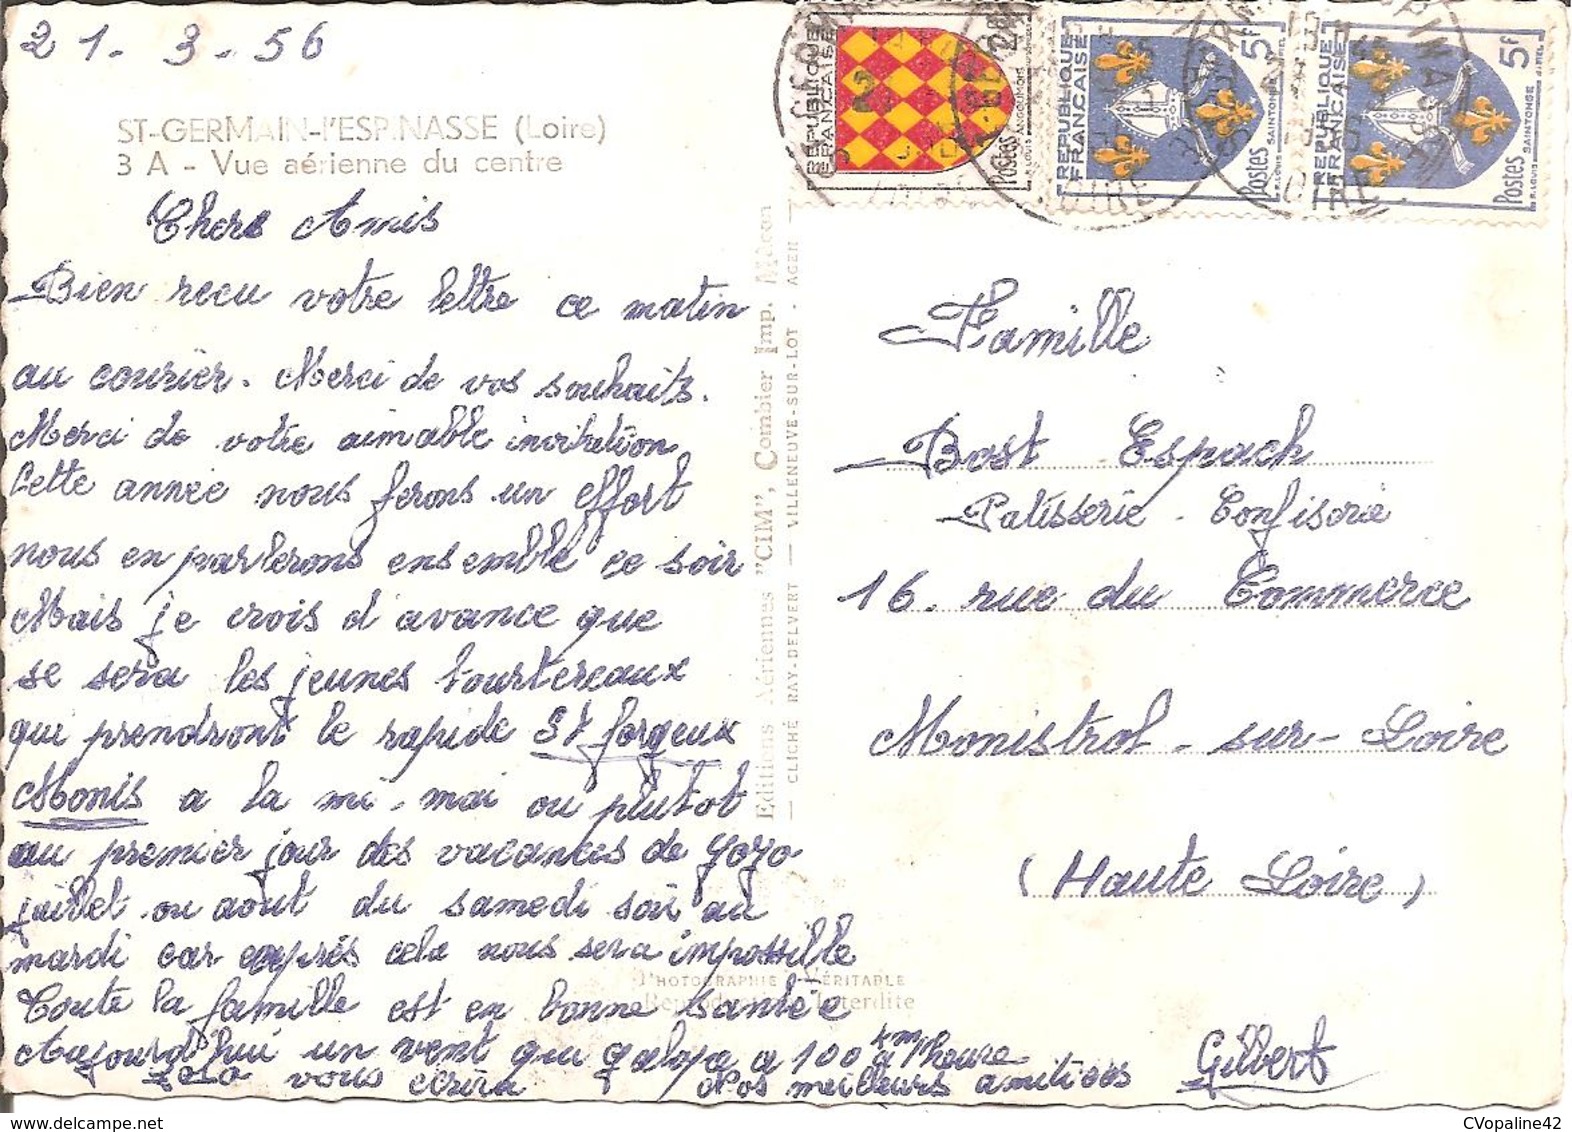 21-3-56
ST-GERMAIN-l'ESPINASSE (Loire)
3 A - Vue aérienne du centre
Chers Amis
Bien recu votre lettre ce matin
au courier. Merci de vos souhaits.
Merci de votre aimable invitation
Cette année nous ferons un effort
nous en parlerons ensemble ce soir
Mais je crois d'avance que
se sera les jeunes tourtereaux
qui prendront le rapide St forgeux
Monis a la mi-mai ou plutot
au premier jour des vacances de Yoyo
juillet ou aout du samedi soir au
mardi car après cela nous sera impossible
Toute la famille est en bonne santée
Aujourd'hui un vent qui galope a 100 km à l'heure
vous écrira
Nos meilleurs amitiées Gilbert
Editions Aériennes "CIM", Combier Imp. Mâcon
CLICHÉ RAY-DELVERT — VILLENEUVE-SUR-LOT - AGEN
PHOTOGRAPHIE VÉRITABLE
Reproduction Interdite
REPUBLIQUE FRANÇAISE
Postes
ANGOUMOIS
REPUBLIQUE FRANÇAISE
5F
Postes
SAINTONGE
REPUBLIQUE FRANÇAISE
5F
Postes
SAINTONGE
LOIRE
Famille
Bost Espach
Patisserie - Confiserie
16. rue du Commerce
Monistrol-sur-Loire
(Haute Loire)
CVopaline42